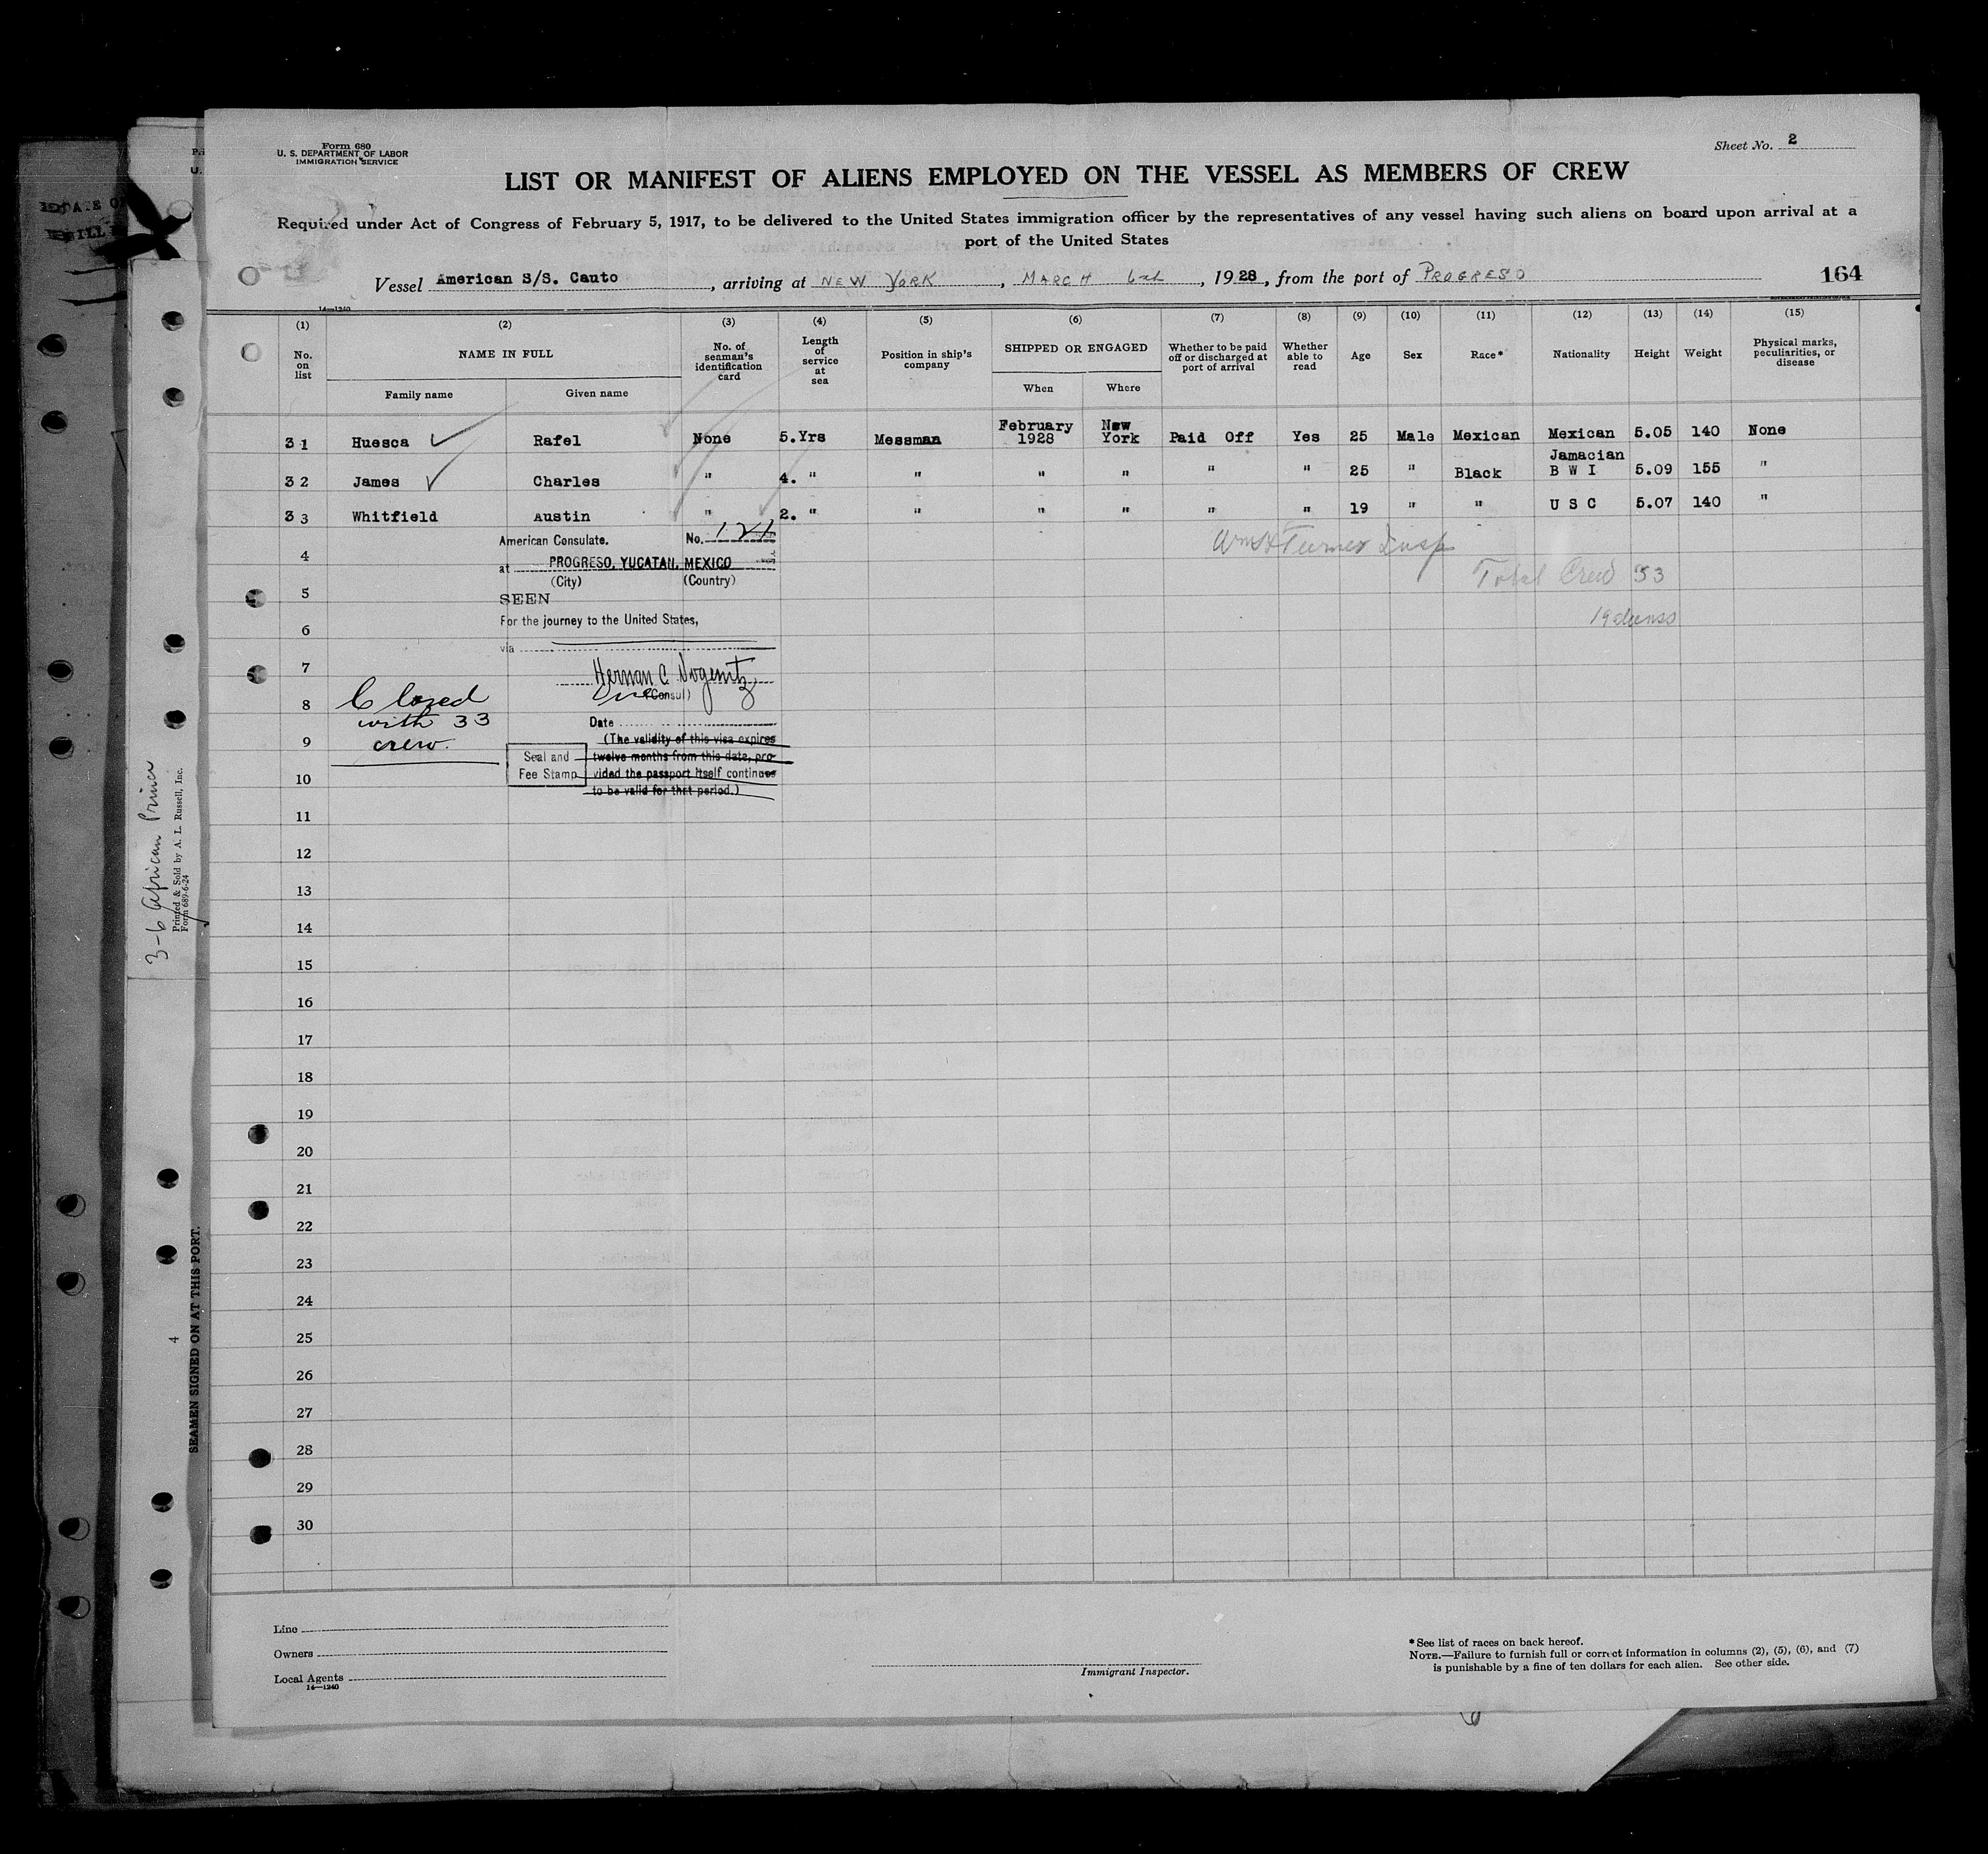 Form 680
U. S. DEPARTMENT OF LABOR
IMMIGRATION SERVICE
Sheet No. 2
LIST OR MANIFEST OF ALIENS EMPLOYED ON THE VESSEL AS MEMBERS OF CREW
Required under Act of Congress of February 5, 1917, to be delivered to the United States immigration officer by the representatives of any vessel having such aliens on board upon arrival at a
port of the United States
Vessel American S/S. Cauto, arriving at NEW YORK, MARCH 6th, 1928, from the port of PROGRESO 164
14—1240
(1) (2) (3) (4) (5) (6) (7) (8) (9) (10) (11) (12) (13) (14) (15)
No. on list
NAME IN FULL
Family name Given name
No. of seaman's identification card
Length of service at sea
Position in ship's company
SHIPPED OR ENGAGED
When Where
Whether to be paid off or discharged at port of arrival
Whether able to read
Age Sex Race* Nationality Height Weight
Physical marks, peculiarities, or disease
31 Huesca Rafel None 5.Yrs Messman February 1928 New York Paid Off Yes 25 Male Mexican Mexican 5.05 140 None
32 James Charles " 4. " " " " " " 25 " Black Jamacian B W I 5.09 155 "
33 Whitfield Austin " 2. " " " " " " 19 " " U S C 5.07 140 "
American Consulate. No. 121
at PROGRESO, YUCATAN, MEXICO
(City) (Country)
SEEN
For the journey to the United States,
via
(Consul)
Date
(The validity of this visa expires
twelve months from this date, pro-
vided the passport itself continues
to be valid for that period.)
Seal and
Fee Stamp
Wm H Turner Insp
Total Crew 33
Closed
with 33
crew.
4
5
6
7
8
9
10
11
12
13
14
15
16
17
18
19
20
21
22
23
24
25
26
27
28
29
30
Line
Owners
Local Agents
14—1240
Immigrant Inspector.
*See list of races on back hereof.
NOTE.—Failure to furnish full or correct information in columns (2), (5), (6), and (7)
is punishable by a fine of ten dollars for each alien. See other side.
3-6 African Prince
Printed & Sold by A. L. Russell, Inc.
Form 689-6-24
4
SEAMEN SIGNED ON AT THIS PORT.